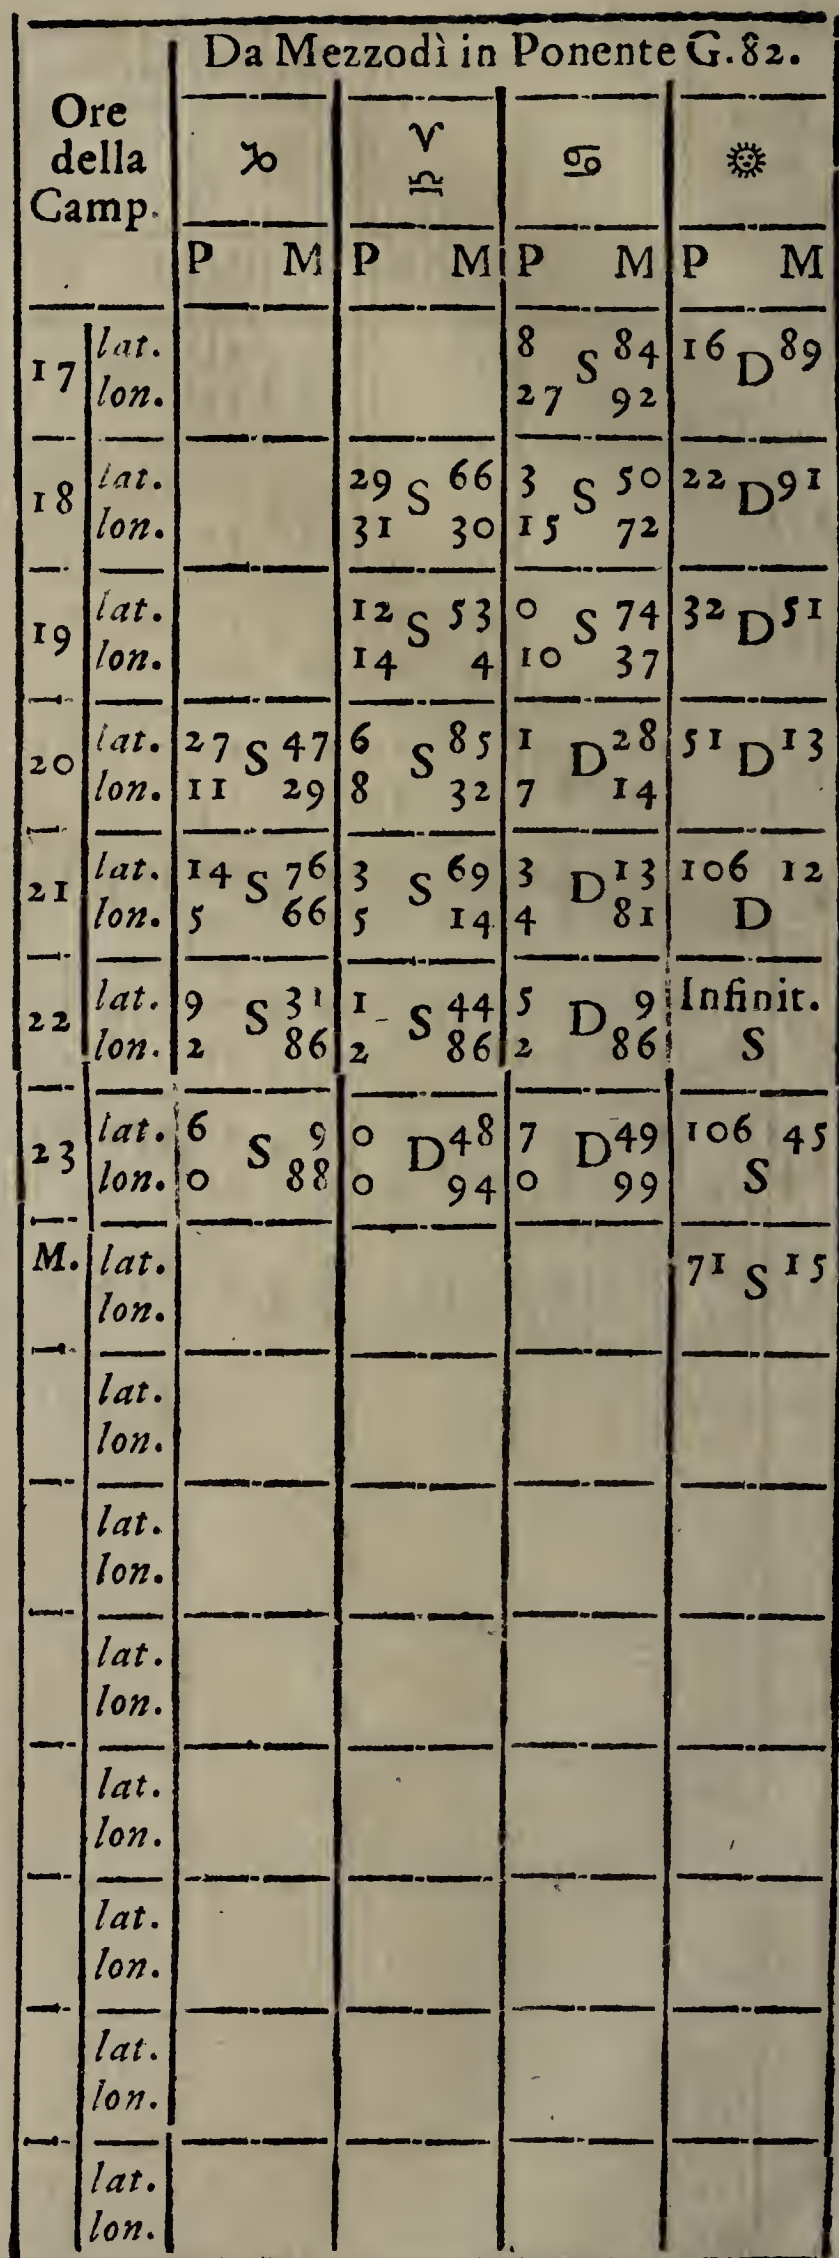 Da Mezzodì in Ponente G.82.
Ore della Camp. ♑ ♈ ♎ ♋ ☼
P M P M P M P M
17 lat. 8 S 84 16 D 89
lon. 27 92
18 lat. 29 S 66 3 S 50 22 D 91
lon. 31 30 15 72
19 lat. 12 S 53 0 S 74 32 D 51
lon. 14 4 10 37
20 lat. 27 S 47 6 S 85 1 D 28 51 D 13
lon. 11 29 8 32 7 14
21 lat. 14 S 76 3 S 69 3 D 13 106 12
lon. 5 66 5 14 4 81 D
22 lat. 9 S 31 1 S 44 5 D 9 Infinit.
lon. 2 86 2 86 2 86 S
23 lat. 6 S 9 0 D 48 7 D 49 106 45
lon. 0 88 0 94 0 99 S
M. lat. 71 S 15
lon.
lat.
lon.
lat.
lon.
lat.
lon.
lat.
lon.
lat.
lon.
lat.
lon.
lat.
lon.